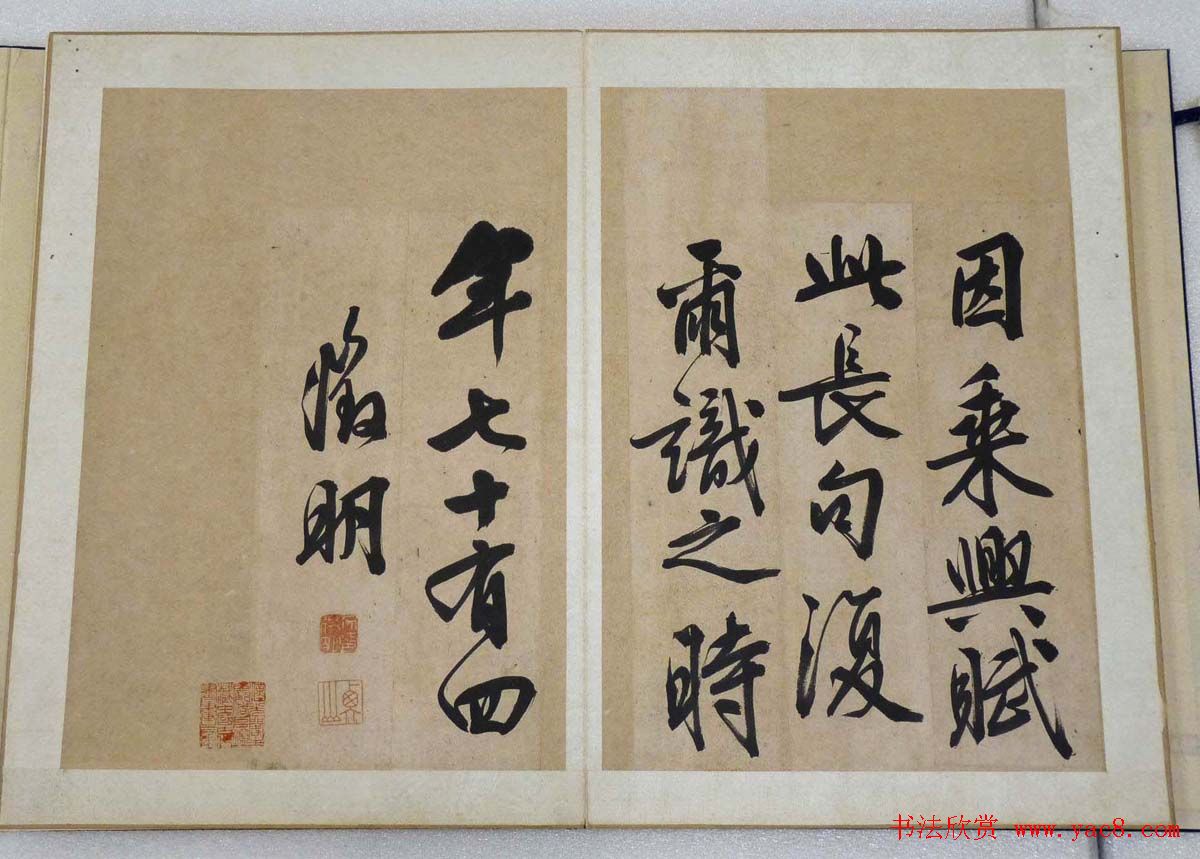 因乗興賦
此長句復
爾識之時
年七十有四
徵明
书法欣赏 www.yac8.com